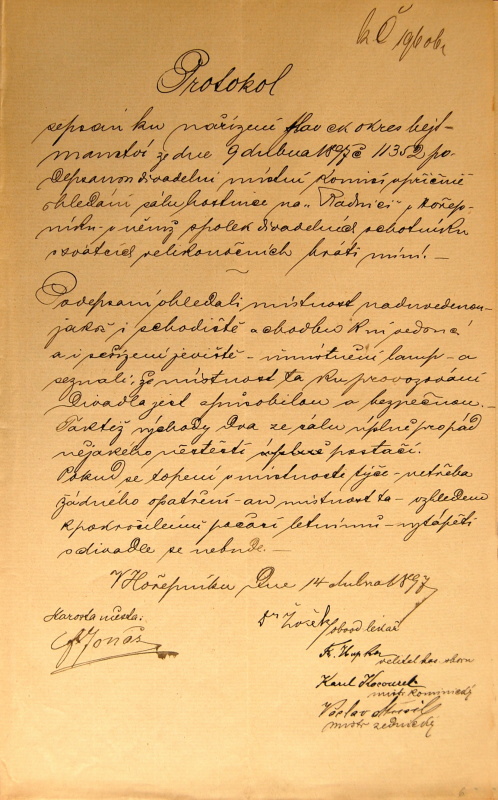 k Č 196 obe
Protokol
sepsán ku nařízení slav ck okres hejt-
manství ze dne 9 dubna 1897 č 11352 po-
depsanou divadelní místní komisí o příčině
ohledání sálu hostince na „Radnici" v Hořep-
níku v němž spolek divadelních ochotníků
o svátcích velikonočních hráti míní. –
Podepsaní ohledali místnost naduvedenou
jakož i schodiště a chodbu k ní vedoucí
a i seřízení jeviště – umístnění lamp – a
seznali, že místnost ta ku provozování
divadla jest spůsobilou a bezpečnou. –
Taktéž východy dva ze sálu úplně pro pád
nějakého neštěstí postačí.
Pokud se topení v místnosti týče – netřeba
žádného opatření – an místnost ta – vzhledem
k pokročilému počasí letnímu – vytápěti
o divadle se nebude. –
V Hořepníku dne 14 dubna 1897
Starosta města:
Jonáš
Dr Žižek
obvod lékař
F. Hupka
velitel has. sboru
Karel Kocourek
mistr kominický
Václav
mistr zednický